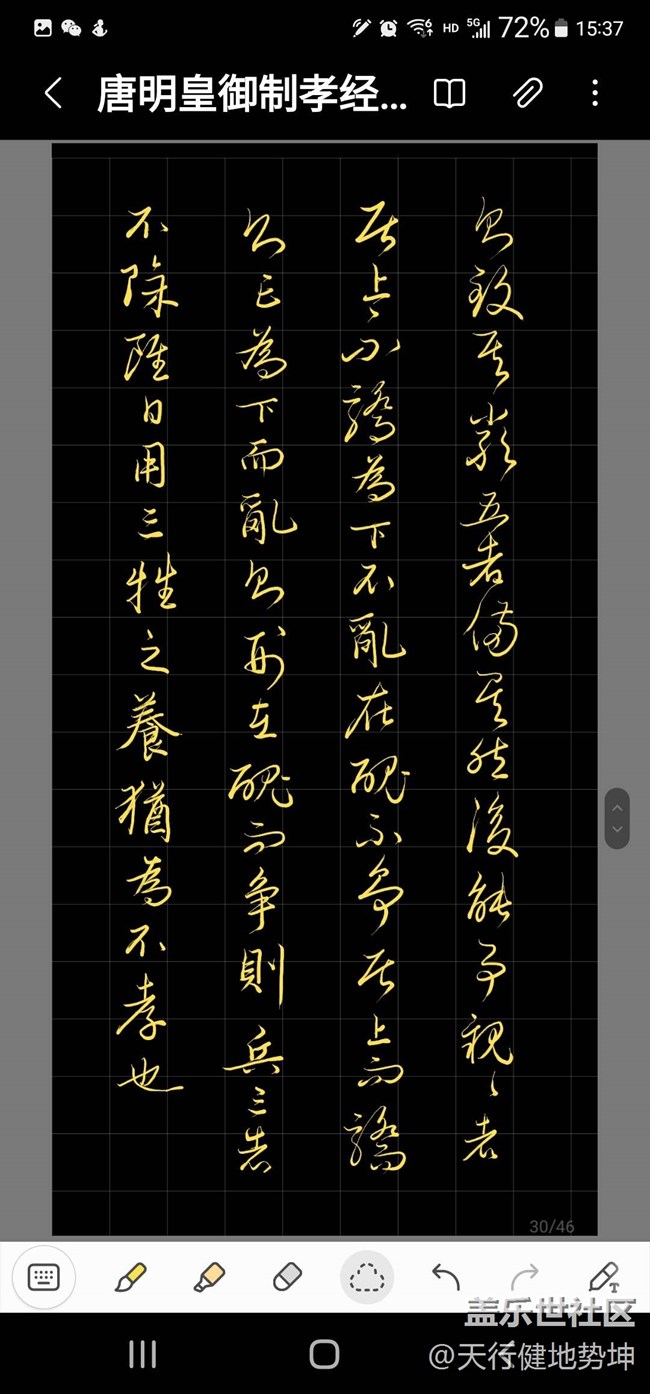 15:37
72%
HD
5G
6
唐明皇御制孝经...
則致其嚴五者備矣然後能事親〻者
居上不驕為下不亂在醜不爭居上而驕
則亡為下而亂則刑在醜而争則兵三者
不除雖日用三牲之養猶為不孝也
30/46
盖乐世社区
@天行健地势坤